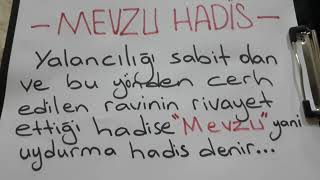 - MEVZU HADİS -
Yalancılığı sabit olan
ve bu yönden cerh
edilen ravinin rivayet
ettiği hadise "Mevzu" yani
uydurma hadis denir...